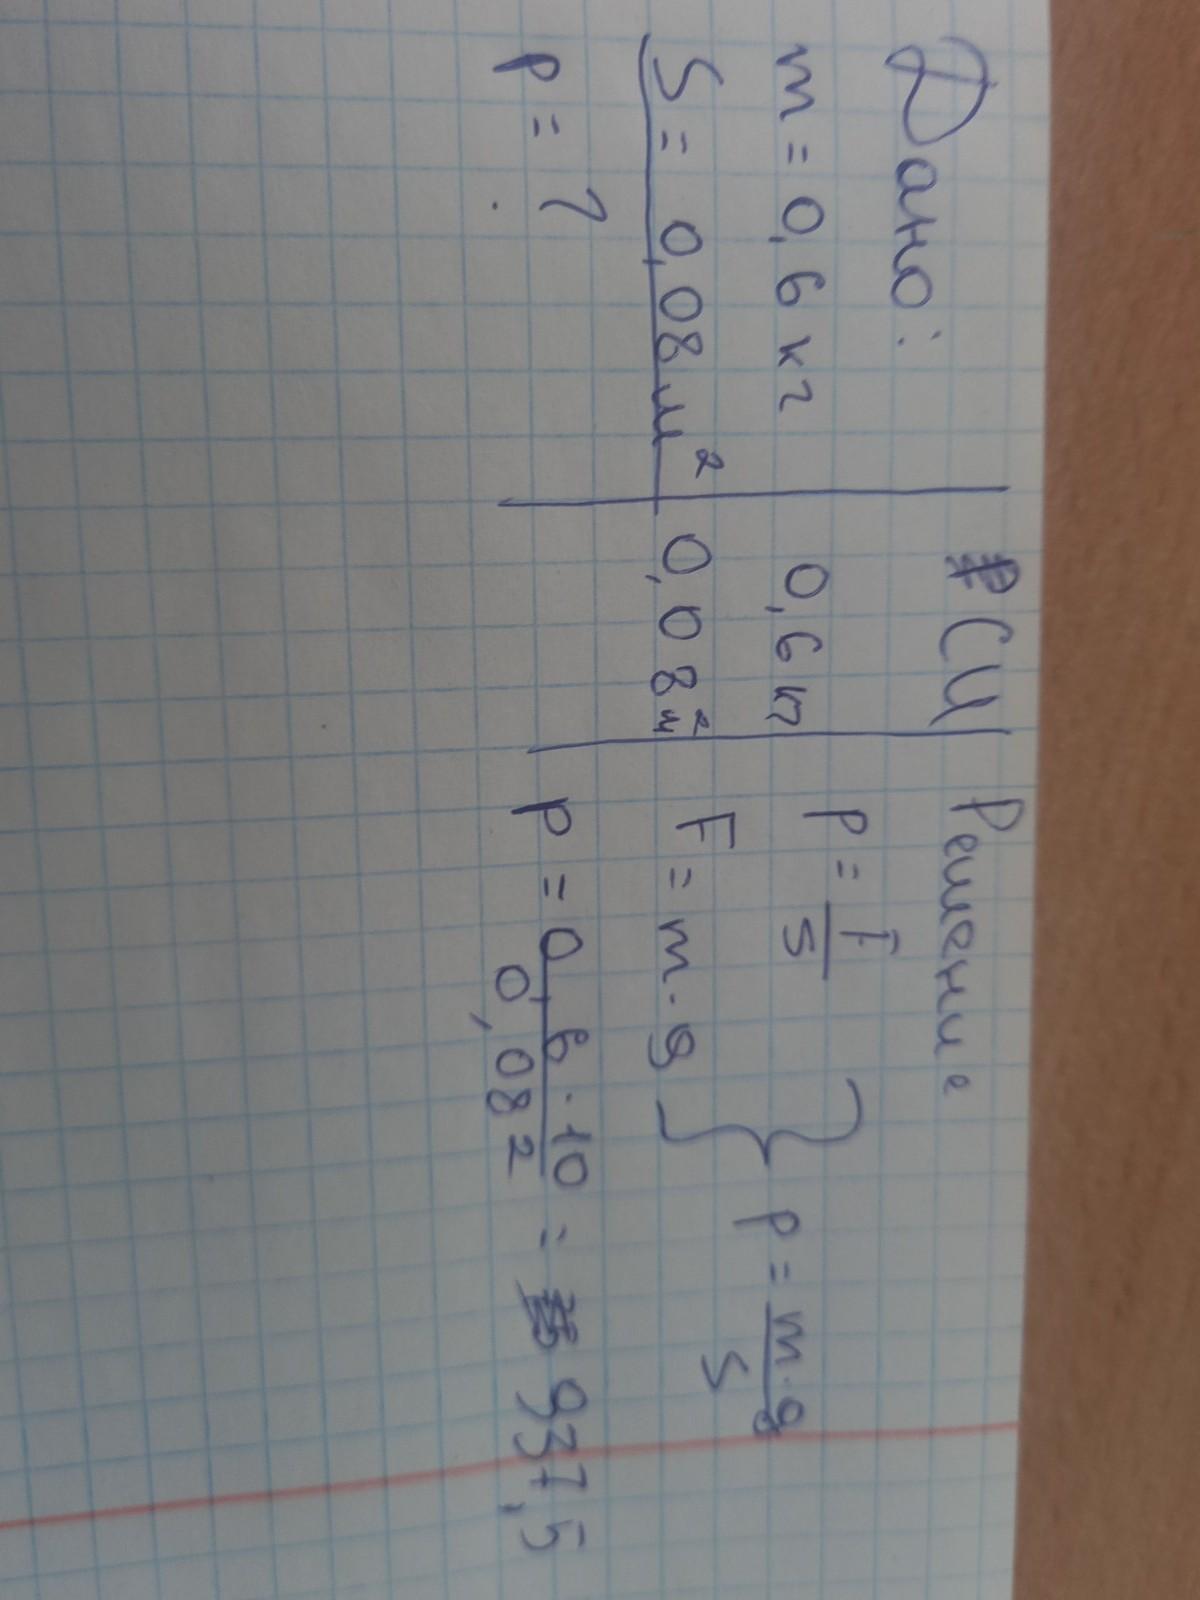 Дано:
m = 0,6 кг
S = 0,08 м²
p = ?
СИ
0,6 кг
0,08 м²
Решение
P = F/S
F = m · g
p = m · g / S
p = 0,6 · 10 / 0,08² = 937,5